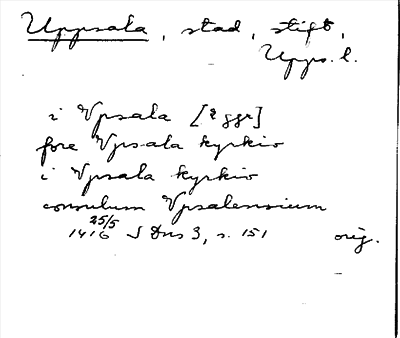 Uppsala, stad, stift,
Upps. l.
i Vpsala [2 ggr]
fore Vpsala kyrkio
i Vpsala kyrkio
consulum Vpsalensium
25/5
1416 SDns 3, s. 151 orig.